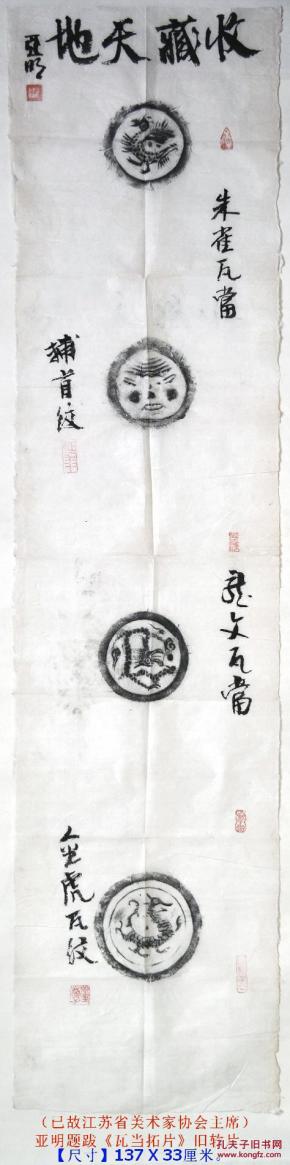 收藏天地
亞明
朱雀瓦當
輔首纹
龍文瓦當
人坐虎瓦纹
（已故江苏省美术家协会主席）
亚明题跋《瓦当拓片》旧软片。
【尺寸】137 X 33厘米。
孔夫子旧书网
www.kongfz.com